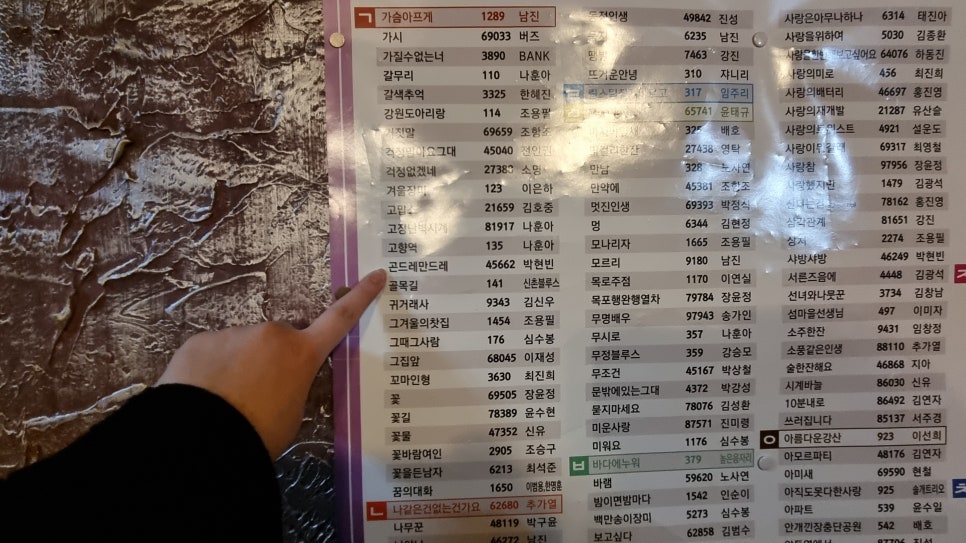 ㄱ 가슴아프게 1289 남진
가시 69033 버즈
가질수없는너 3890 BANK
갈무리 110 나훈아
갈색추억 3325 한혜진
강원도아리랑 114 조용필
69659 조항조
45040 전인권
걱정없겠네 27383
123 이은하
21659 김호중
고장난벽시계 81917 나훈아
고향역 135 나훈아
곤드레만드레 45662 박현빈
골목길 141 신촌블루스
귀거래사 9343 김신우
그겨울의찻집 1454 조용필
그때그사람 176 심수봉
그집앞 68045 이재성
꼬마인형 3630 최진희
꽃 69505 장윤정
꽃길 78389 윤수현
꽃물 47352 신유
꽃바람여인 2905 조승구
꽃을든남자 6213 최석준
꿈의대화 1650 이범용,한명훈
ㄴ 나같은건없는건가요 62680 추가열
나무꾼 48119 박구윤
46272 남진
49842 진성
6235 남진
7463 강진
뜨거운안녕 310 쟈니리
317 임주리
65741 윤태규
325 배호
27438 영탁
만남 328 노사연
만약에 45381 조항조
멋진인생 69393 박정식
멍 6344 김현정
모나리자 1665 조용필
모르리 9180 남진
목로주점 1170 이연실
목포행완행열차 79784 장윤정
무명배우 97943 송가인
무시로 357 나훈아
무정블루스 359 강승모
무조건 45167 박상철
문밖에있는그대 4372 박강성
묻지마세요 78076 김성환
미운사랑 87571 진미령
미워요 1176 심수봉
ㅂ 바다에누워 379 높은음자리
바램 59620 노사연
밤이면밤마다 1542 인순이
백만송이장미 5273 심수봉
보고싶다 62858 김범수
사랑은아무나하나 6314 태진아
사랑을위하여 5030 김종환
사랑을한번해보고싶어요 64076 하동진
사랑의미로 456 최진희
사랑의배터리 46697 홍진영
사랑의재개발 21287 유산슬
사랑의트위스트 4921 설운도
69317 최영철
사랑참 97956 장윤정
사랑했지만 1479 김광석
78162 홍진영
삼각관계 81651 강진
상처 2274 조용필
샤방샤방 46249 박현빈
서른즈음에 4448 김광석
선녀와나뭇꾼 3734 김창남
섬마을선생님 497 이미자
소주한잔 9431 임창정
소풍같은인생 88110 추가열
술한잔해요 46868 지아
시계바늘 86030 신유
10분내로 86492 김연자
쓰러집니다 85137 서주경
ㅇ 아름다운강산 923 이선희
아모르파티 48176 김연자
아미새 69590 현철
아직도못다한사랑 925 솔개트리오
아파트 539 윤수일
안개낀장충단공원 542 배호